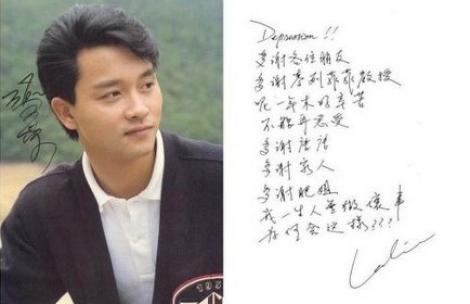 Depression!!
多谢各位朋友
多谢麦列菲菲教授
呢一年来好辛苦
不能再忍受
多谢唐唐
多谢家人
多谢肥姐
我一生人无做坏事
为何会这样???
Leslie
195